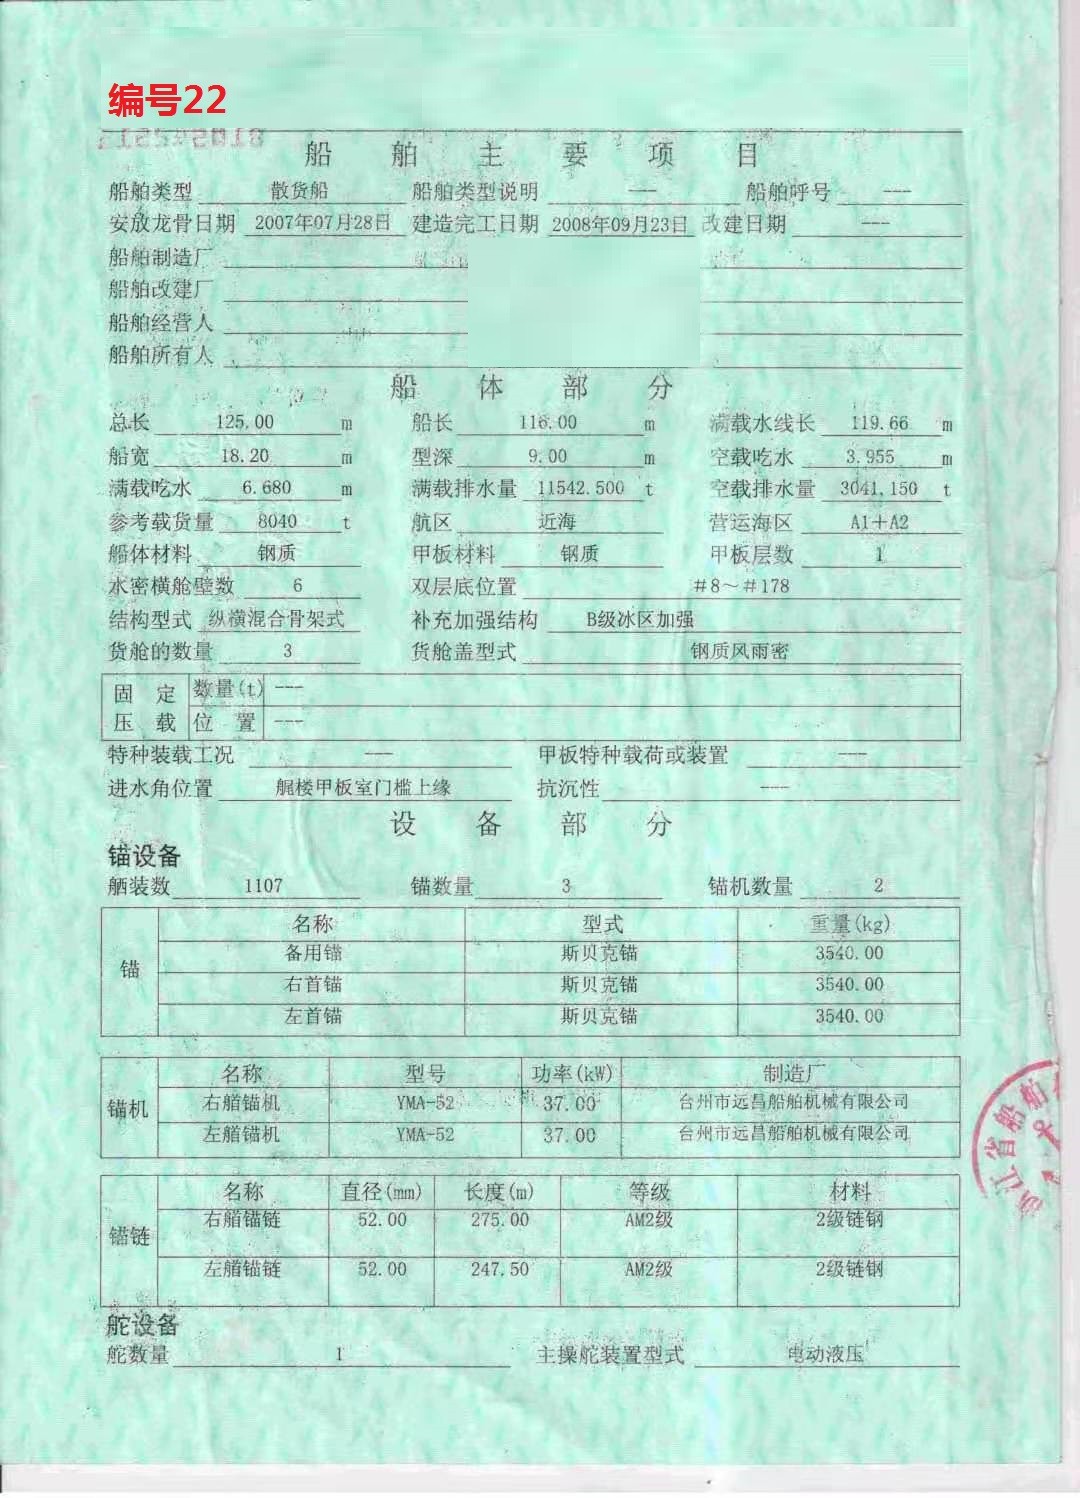 编号22
船舶主要项目
船舶类型 散货船 船舶类型说明 --- 船舶呼号 ---
安放龙骨日期 2007年07月28日 建造完工日期 2008年09月23日 改建日期 ---
船舶制造厂
船舶改建厂
船舶经营人
船舶所有人
船体部分
总长 125.00 m 船长 116.00 m 满载水线长 119.66 m
船宽 18.20 m 型深 9.00 m 空载吃水 3.955 m
满载吃水 6.680 m 满载排水量 11542.500 t 空载排水量 3041.150 t
参考载货量 8040 t 航区 近海 营运海区 A1+A2
船体材料 钢质 甲板材料 钢质 甲板层数 1
水密横舱壁数 6 双层底位置 #8~#178
结构型式 纵横混合骨架式 补充加强结构 B级冰区加强
货舱的数量 3 货舱盖型式 钢质风雨密
固定 数量(t) ---
压载 位置 ---
特种装载工况 --- 甲板特种载荷或装置 ---
进水角位置 艉楼甲板室门槛上缘 抗沉性 ---
设备部分
锚设备
舾装数 1107 锚数量 3 锚机数量 2
名称 型式 重量(kg)
备用锚 斯贝克锚 3540.00
锚 右首锚 斯贝克锚 3540.00
左首锚 斯贝克锚 3540.00
名称 型号 功率(kW) 制造厂
锚机 右艏锚机 YMA-52 37.00 台州市远昌船舶机械有限公司
左艏锚机 YMA-52 37.00 台州市远昌船舶机械有限公司
名称 直径(mm) 长度(m) 等级 材料
右艏锚链 52.00 275.00 AM2级 2级链钢
锚链
左艏锚链 52.00 247.50 AM2级 2级链钢
舵设备
舵数量 1 主操舵装置型式 电动液压
江省船舶